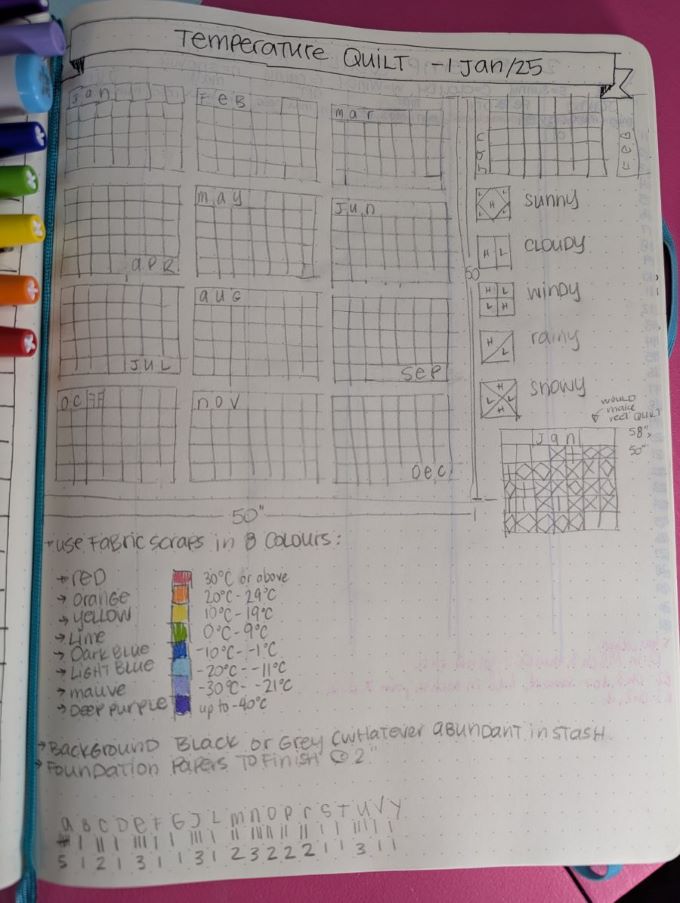 Temperature Quilt - 1 Jan/25
Jan
Feb
mar
apr
may
Jun
Jul
aug
Sep
oct
nov
Dec
50"
50
H
sunny
H L
CLOUDY
H L
L H
windy
H
L
rainy
H
L L
H
snowy
WOULD
make
rect QUILT
58" x
50"
Jan
USE FABRIC SCRAPS in 8 COLOURS:
→ RED 30°C or above
→ Orange 20°C - 29°C
→ Yellow 10°C - 19°C
→ Lime 0°C - 9°C
→ Dark Blue -10°C - -1°C
→ Light Blue -20°C - -11°C
→ mauve -30°C - -21°C
→ Deep Purple up to -40°C
→ Background Black or Grey (whatever abundant in stash
→ Foundation Papers to Finish @ 2"
a B C D e F G J L m n o p r s t u v y
5 1 2 1 3 1 1 3 1 2 3 2 2 2 1 1 3 1 1